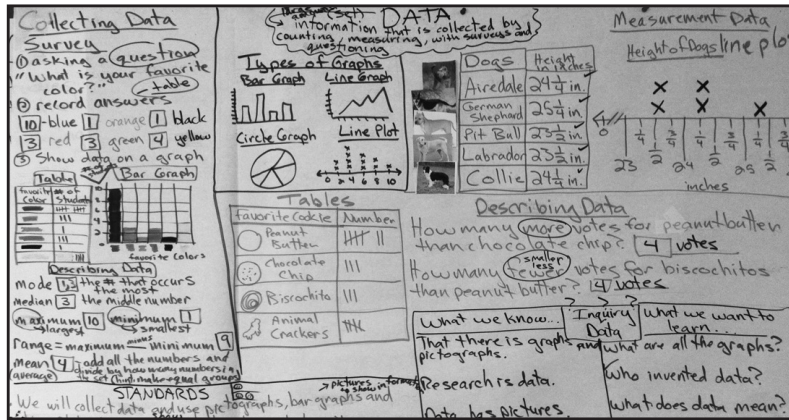 Collecting Data
Survey
① asking a question
"What is your favorite
color?"
table
② record answers
10 - blue 1 orange 1 black
3 red 3 green 4 yellow
③ Show data on a graph
Table
favorite color
# of students
Bar Graph
10
8
6
4
2
0
favorite colors
Describing Data
mode 1,3 the # that occurs
the most
median 3 the middle number
maximum 10 minimum 1
largest smallest
range = maximum minus minimum 9
mean 4 add all the numbers and
(average) divide by how many numbers in
the set (hint: make equal groups)
STANDARDS
We will collect data and use pictographs, bar graphs and
(set) DATA
information that is collected by
counting, measuring, with surveys and
questioning
Types of Graphs
Bar Graph Line Graph
Circle Graph Line Plot
0 2 4 6 8 10
Dogs Height in inches
Airedale 24 1/4 in.
German Shephard 25 1/4 in.
Pit Bull 23 1/2 in.
Labrador 23 1/2 in.
Collie 24 1/4 in.
Measurement Data
Height of Dogs line plot
0 23 1/4 1/2 3/4 24 1/4 1/2 3/4 25 1/4 1/2
inches
Tables
Favorite Cookie Number
Peanut Butter
Chocolate Chip
Biscochito
Animal Crackers
pictures
to show information
Describing Data
How many more votes for peanut butter
than chocolate chip? 4 votes
smaller
less
How many fewer votes for biscochitos
than peanut butter? 4 votes
What we know...
That there is graphs and
pictographs.
Research is data.
Data has pictures.
? ? ?
Inquiry
Data
What we want to
learn...
What are all the graphs?
Who invented data?
What does data mean?